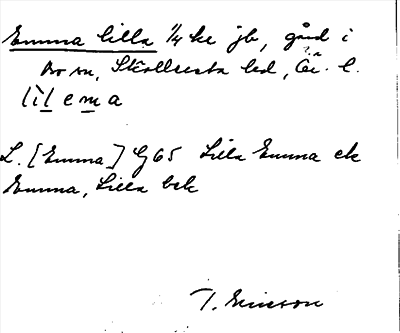 Emma lilla 1/4 kr jb, gård i
sn, Skällersta hd, Ör. l.
lìl ema
L. [Emma] G65 Lilla Emma ek
Emma, Lilla bek
T. Ericsson